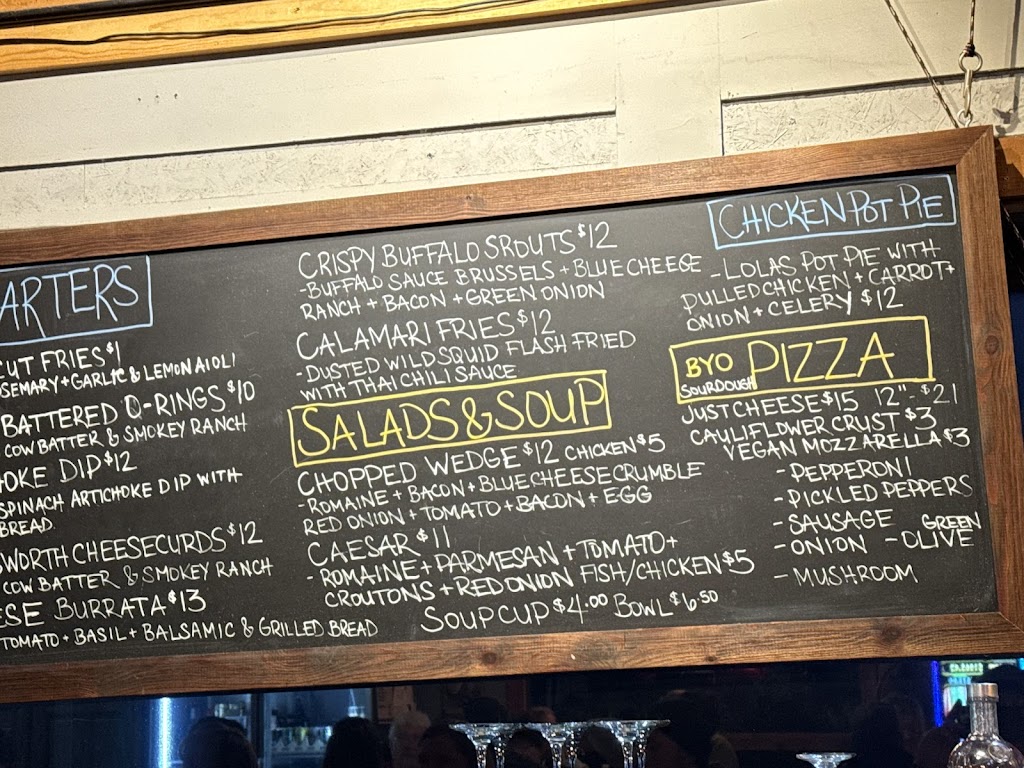 ARTERS
CUT FRIES $1
OSEMARY + GARLIC & LEMON AIOLI
BATTERED O-RINGS $10
COW BATTER & SMOKEY RANCH
OKE DIP $12
SPINACH ARTICHOKE DIP WITH
BREAD
SWORTH CHEESECURDS $12
COW BATTER & SMOKEY RANCH
ESE BURRATA $13
TOMATO + BASIL + BALSAMIC & GRILLED BREAD
CRISPY BUFFALO SROUTS $12
-BUFFALO SAUCE BRUSSELS + BLUE CHEESE
RANCH + BACON + GREEN ONION
CALAMARI FRIES $12
-DUSTED WILD SQUID FLASH FRIED
WITH THAI CHILI SAUCE
SALADS & SOUP
CHOPPED WEDGE $12 CHICKEN $5
-ROMAINE + BACON + BLUE CHEESE CRUMBLE
RED ONION + TOMATO + BACON + EGG
CAESAR $11
- ROMAINE + PARMESAN + TOMATO +
CROUTONS + RED ONION FISH/CHICKEN $5
SOUP CUP $4.00 BOWL $6.50
CHICKEN POT PIE
-LOLAS POT PIE WITH
PULLED CHICKEN + CARROT +
ONION + CELERY $12
BYO PIZZA
SOURDOUGH
JUST CHEESE $15 12"-$21
CAULIFLOWER CRUST $3
VEGAN MOZZARELLA $3
-PEPPERONI
-PICKLED PEPPERS
-SAUSAGE
-ONION -GREEN OLIVE
-MUSHROOM